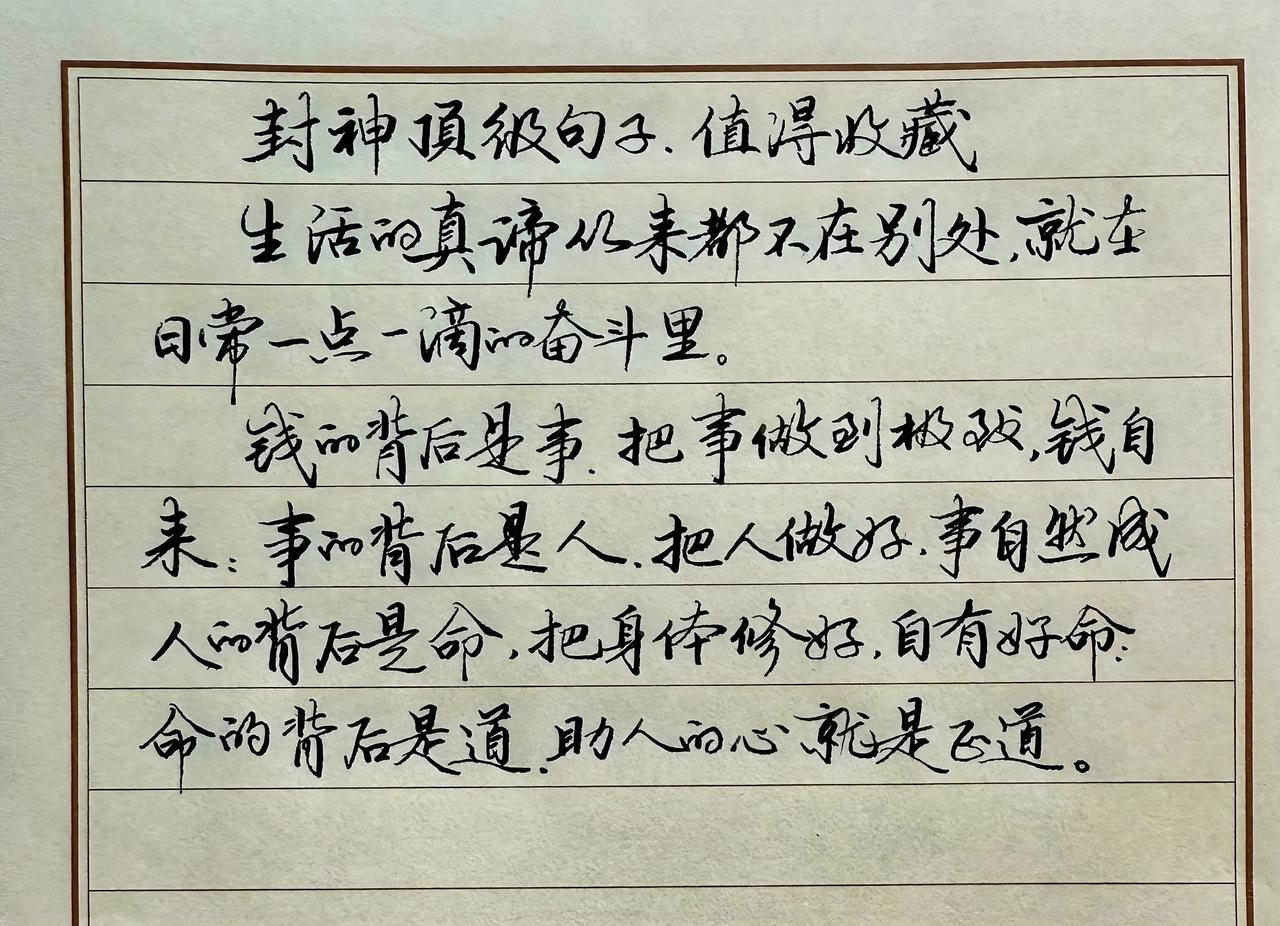 封神頂级句子.值得收藏
生活的真谛从来都不在别处,就在
日常一点一滴的奋斗里。
钱的背后是事.把事做到极致,钱自
来;事的背后是人.把人做好.事自然成
人的背后是命,把身体修好,自有好命;
命的背后是道.助人的心就是正道。